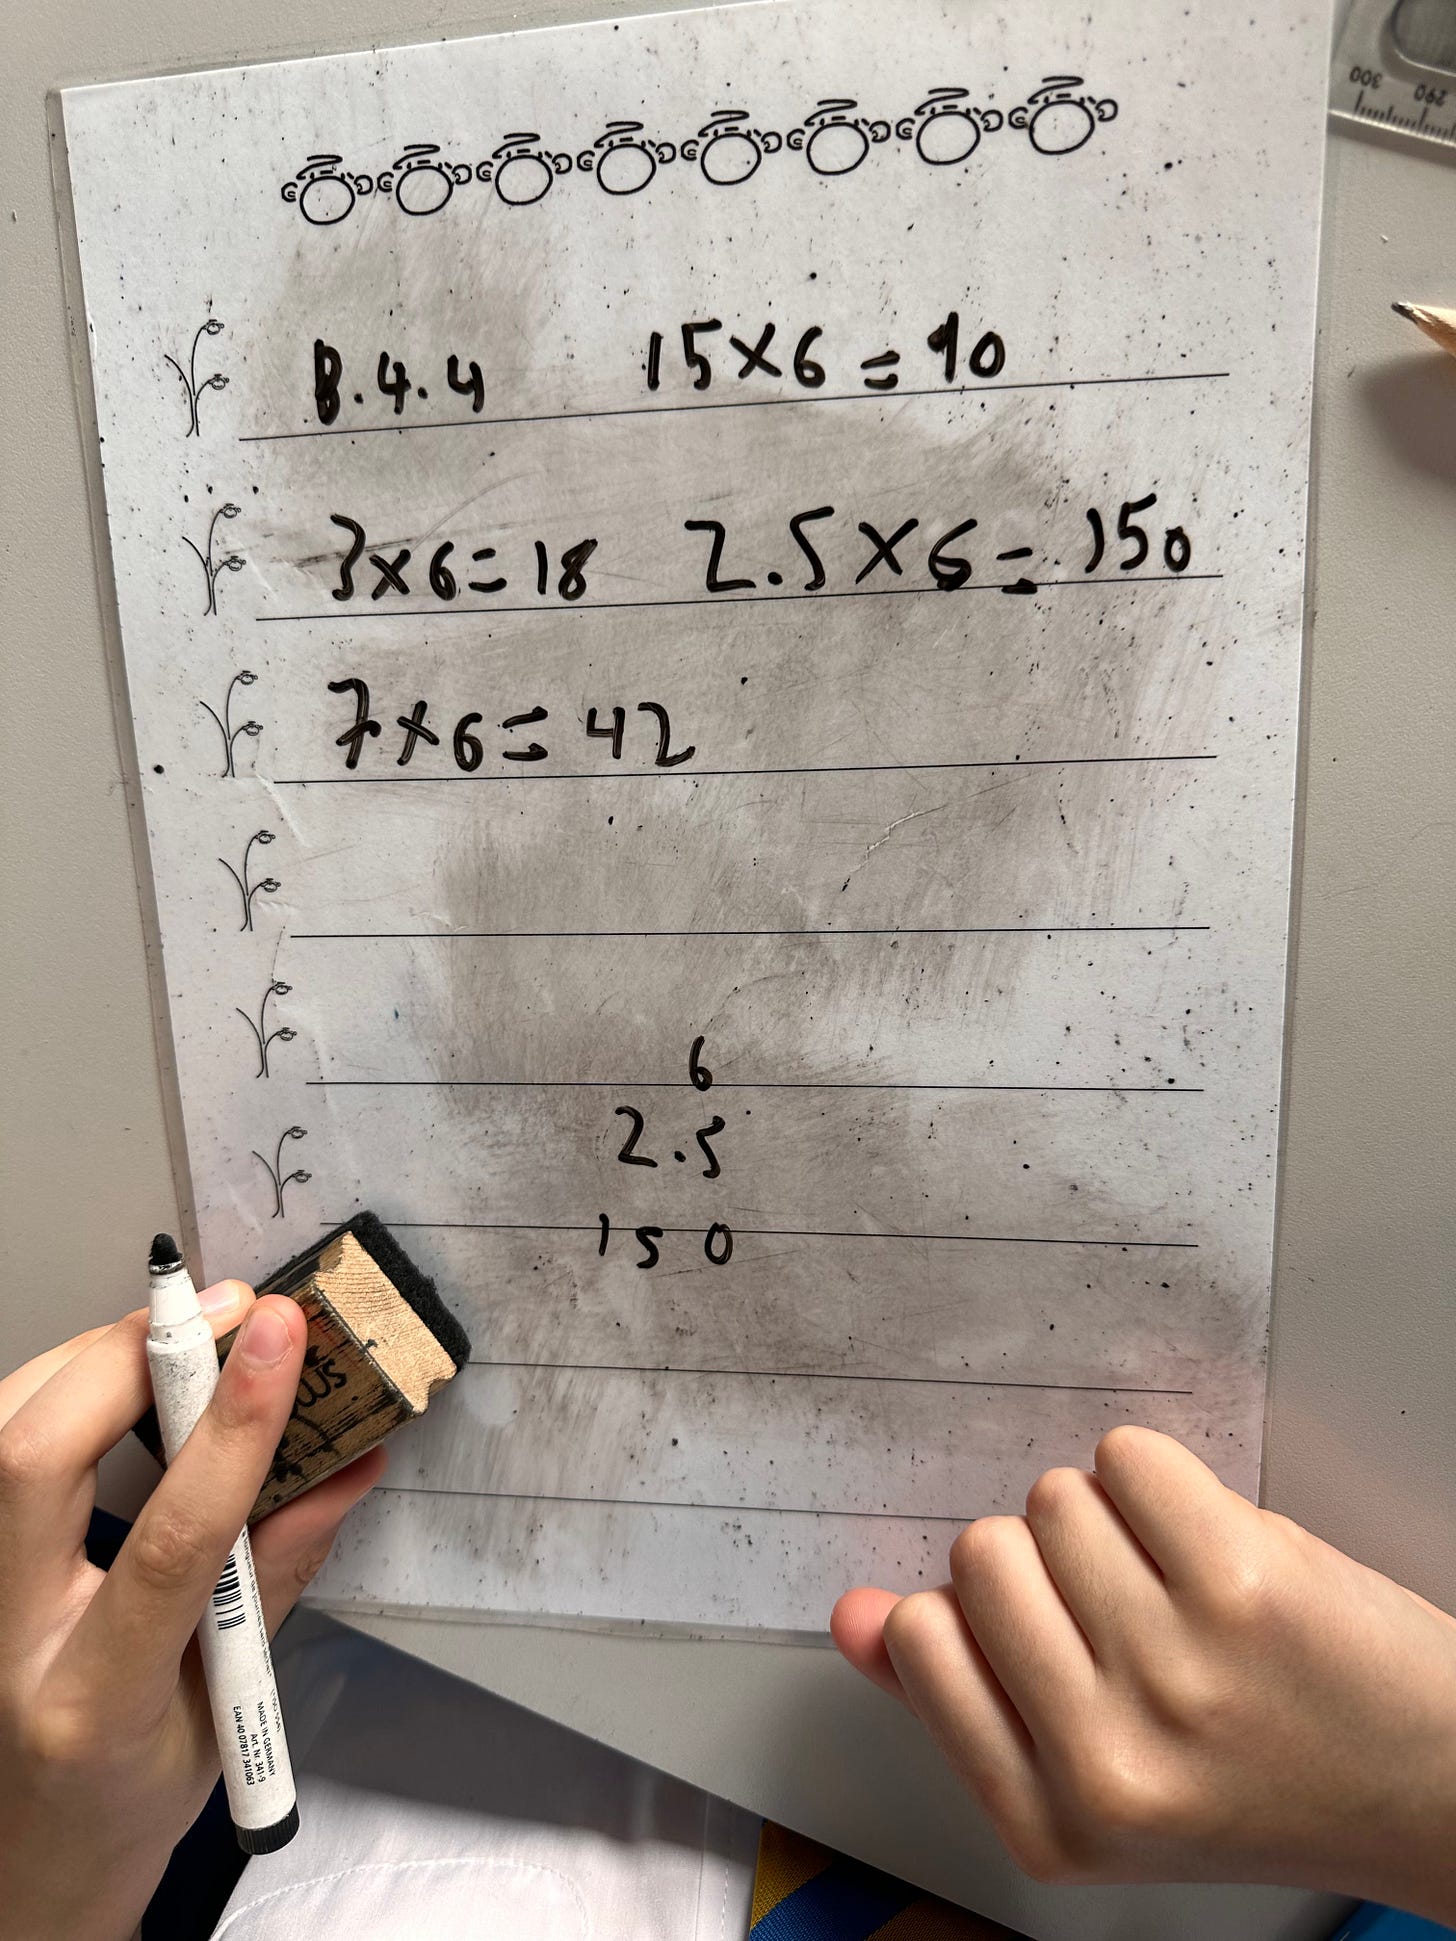 8.4.4 15×6=90
3×6=18 2.5×6=.150
7×6=42
6
2.5
150
300 290
MADE IN GERMANY
Art. Nr. 341-9
EAN 40 07817 341063